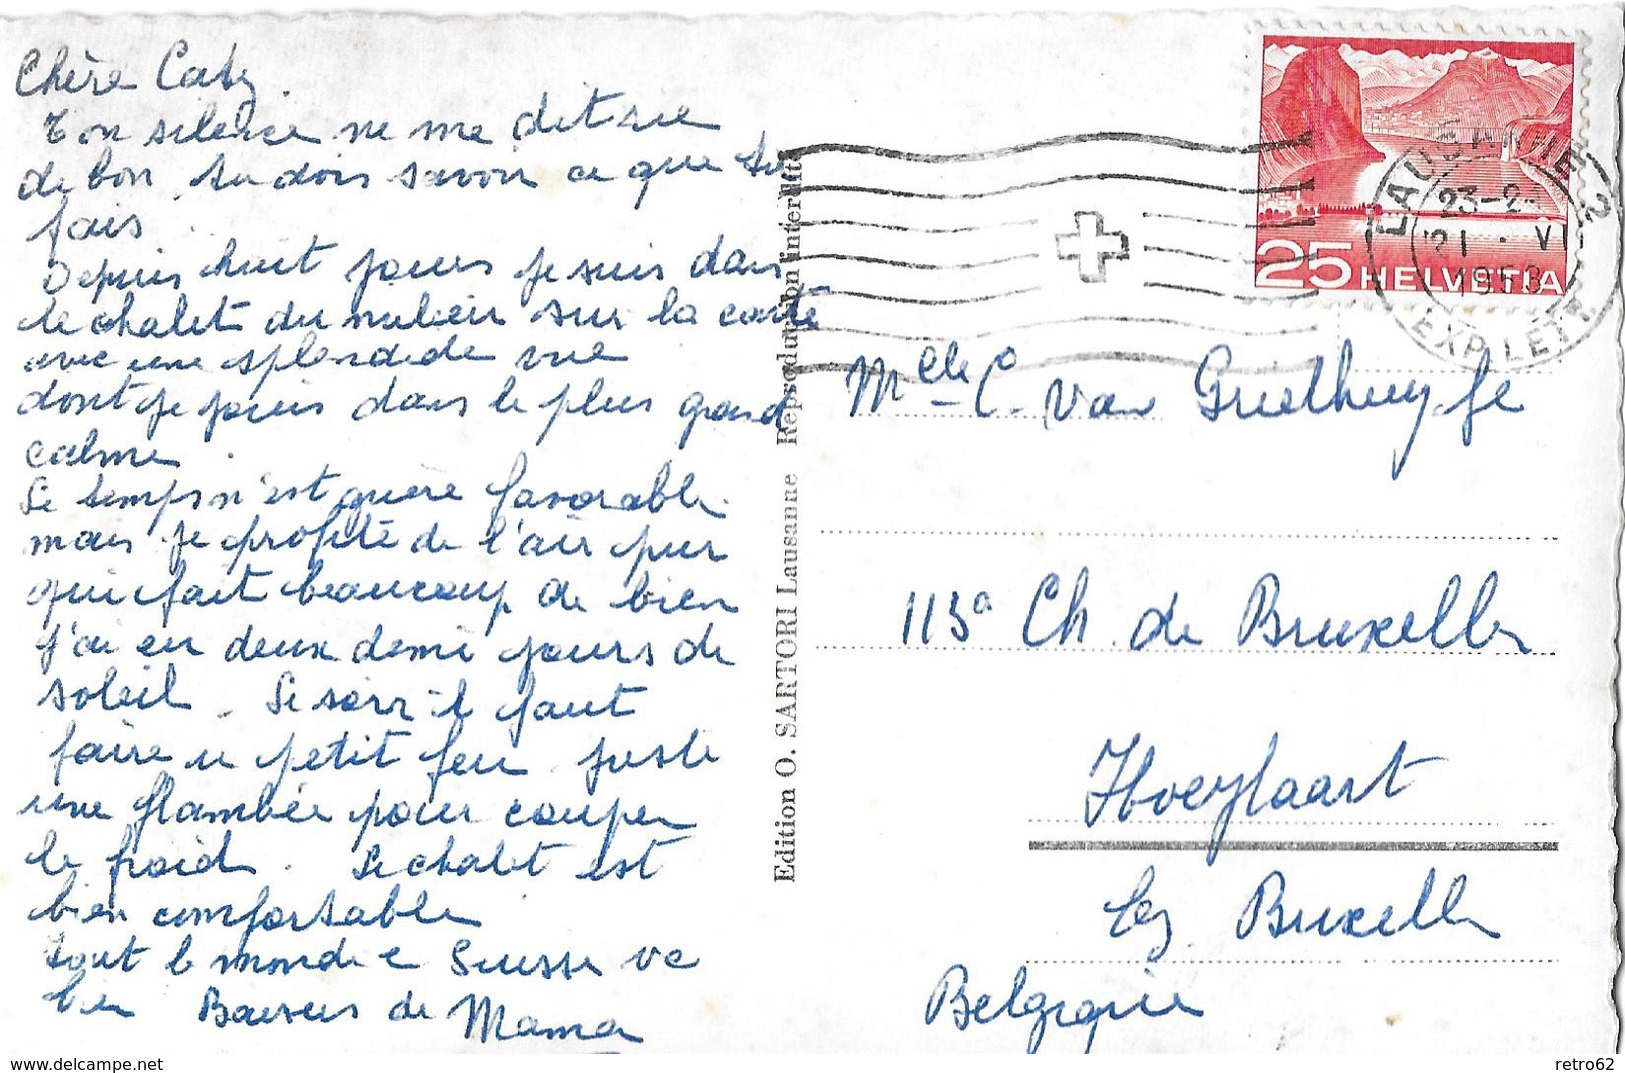 Chère Caty.
Ton silence ne me dit rien
de bon. tu dois savoir ce que tu
fais.
Depuis huit jours je suis dans
le chalet du milieu sur la carte
avec une splendide vue
dont je jouis dans le plus grand
calme.
Le temps n'est guère favorable
mais je profite de l'air pur
qui fait beaucoup de bien
j'ai eu deux demi jours de
soleil. Le soir il faut
faire un petit feu juste
une flambée pour couper
le froid. Le chalet est
bien confortable
Tout le monde e Suisse va
bien Baisers de Mama
Edition O. SARTORI Lausanne Reproduction interdite
25 HELVETIA
LAUSANNE 2
23-2
21. V
1953
EXP. LETTR.
Melle C. van
113a Ch. de Bruxelles
Hoeylaart
lez Bruxelles
Belgique
https://www.delcampe.net
retro62